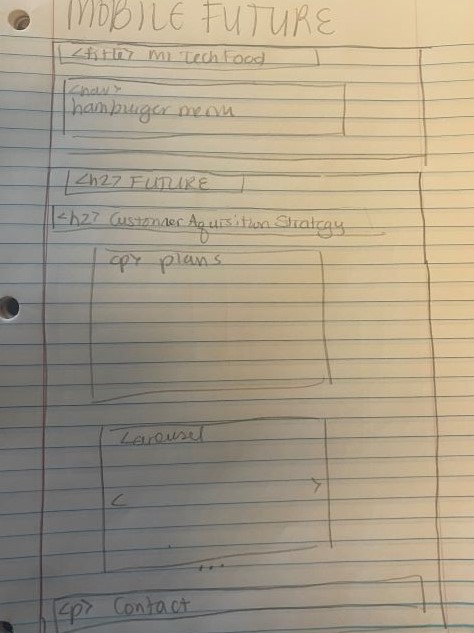 MOBILE FUTURE
<title> Mi Tech Food
<nav>
hamburger menu
<h2> FUTURE
<h2> Custonder Aquisition Strategy
<p> plans
Carousel
< >
...
<p> Contact